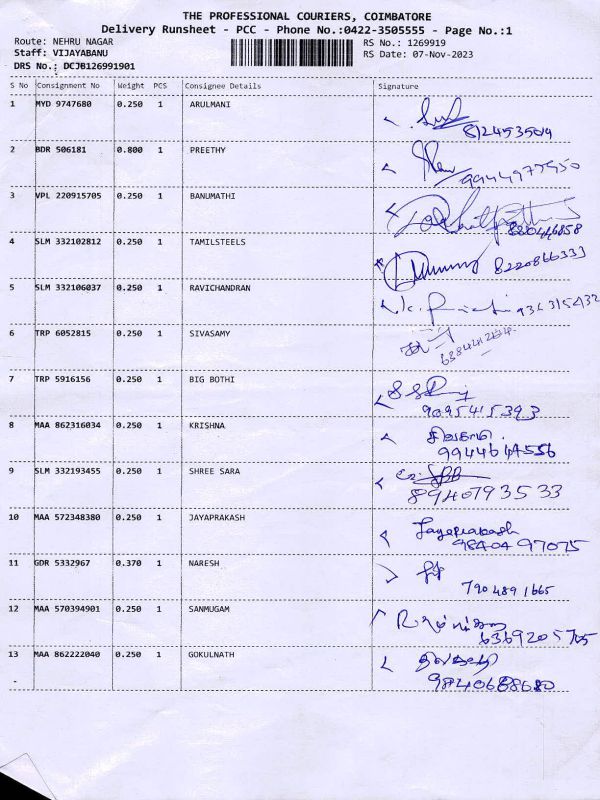 THE PROFESSIONAL COURIERS, COIMBATORE
Delivery Runsheet - PCC - Phone No.:0422-3505555 - Page No.:1
Route: NEHRU NAGAR RS No.: 1269919
Staff: VIJAYABANU RS Date: 07-Nov-2023
DRS No.: DCJB126991901
S No Consignment No Weight PCS Consignee Details Signature
1 MYD 9747680 0.250 1 ARULMANI
2 BDR 506181 0.800 1 PREETHY
9944977950
3 VPL 220915705 0.250 1 BANUMATHI
4 SLM 332102812 0.250 1 TAMILSTEELS
8220866333
5 SLM 332106037 0.250 1 RAVICHANDRAN
6 TRP 6052815 0.250 1 SIVASAMY
7 TRP 5916156 0.250 1 BIG BOTHI
9095415393
8 MAA 862316034 0.250 1 KRISHNA
9944614556
9 SLM 332193455 0.250 1 SHREE SARA
8940793533
10 MAA 572348380 0.250 1 JAYAPRAKASH
Jayaprakash
9840497075
11 GDR 5332967 0.370 1 NARESH
7904891665
12 MAA 570394901 0.250 1 SANMUGAM
6369205705
13 MAA 862222040 0.250 1 GOKULNATH
9840688680